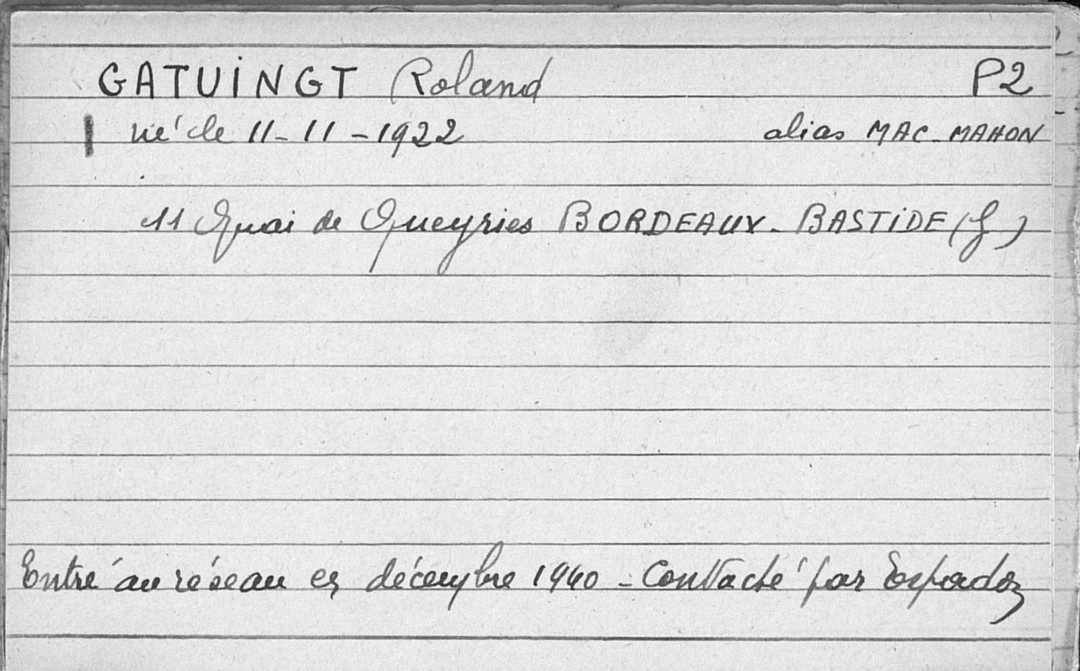 GATUINGT Roland P2
né le 11-11-1922 alias MAC-MAHON
11 Quai de Queyries BORDEAUX-BASTIDE (G)
Entré au réseau en décembre 1940 - Contacté par Espadoz